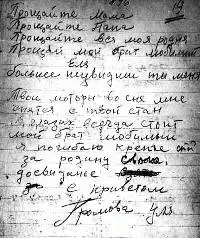 Прощайте Мама
Прощайте Папа
Прощайте вся моя родня
Прощай мой брат любимый
Еля
больше неувидиш ты меня
Твои моторы во сне мне
снятся твой стан
в глазах всегда стоит
мой брат любимый
я погибаю крепче стой
за родину свою.
досвидание
с приветом
Громова Уля